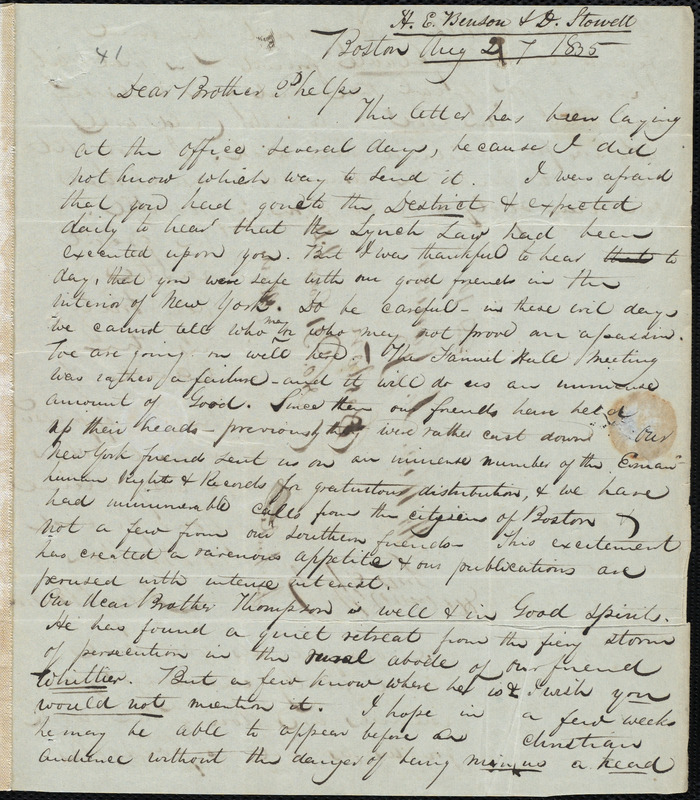 H. E. Benson & D. Stowell
41
Boston Aug 27 1835
Dear Brother Phelps
This letter has been laying
at the office several days, because I did
not know which way to send it. I was afraid
that you had gone to the District & expected
daily to hear that the Lynch Law had been
executed upon you. But I was thankful to hear that to
day, that you were safe with our good friends in the
interior of New York. Do be careful - in these evil days
we cannot tell who may or who may not prove an assassin.
We are going on well here. The Fanuel Hall Meeting
was rather a failure - and it will do us an immense
amount of Good. Since then our friends have held
up their heads - previously they were rather cast down. Our
New York friends sent us on an immense number of the Eman-
human Rights & Records for gratuitous distribution, & we have
had innumerable calls from the citizens of Boston &
not a few from our Southern friends - This excitement
has created a ravenous appetite & our publications are
perused with intense interest.
Our dear Brother Thompson is well & in Good spirits.
He has found a quiet retreat from the fiery storm
of persecution in the rural abode of our friend
Whittier. But a few know where he is & I wish you
would not mention it. I hope in a few weeks
he may be able to appear before a christian
audience without the danger of being minus a head